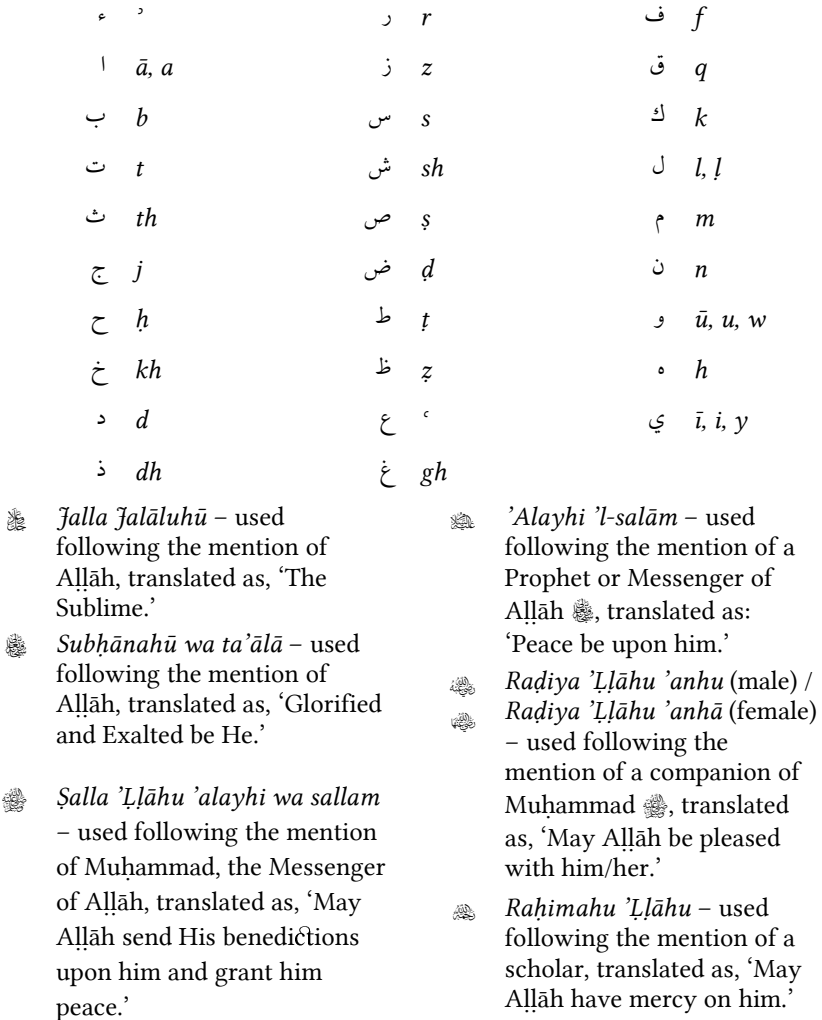 ء ʾ
ا ā, a
ب b
ت t
ث th
ج j
ح ḥ
خ kh
د d
ذ dh
ر r
ز z
س s
ش sh
ص ṣ
ض ḍ
ط ṭ
ظ ẓ
ع ʿ
غ gh
ف f
ق q
ك k
ل l, ḷ
م m
ن n
و ū, u, w
ه h
ي ī, i, y
ﷻ Jalla Jalāluhū – used
following the mention of
Aḷḷāh, translated as, ‘The
Sublime.’
Subḥānahū wa ta’ālā – used
following the mention of
Aḷḷāh, translated as, ‘Glorified
and Exalted be He.’
ﷺ Ṣalla ’Ḷḷāhu ’alayhi wa sallam
– used following the mention
of Muḥammad, the Messenger
of Aḷḷāh, translated as, ‘May
Aḷḷāh send His benedictions
upon him and grant him
peace.’
’Alayhi ’l-salām – used
following the mention of a
Prophet or Messenger of
Aḷḷāh , translated as:
‘Peace be upon him.’
Raḍiya ’Ḷḷāhu ’anhu (male) /
Raḍiya ’Ḷḷāhu ’anhā (female)
– used following the
mention of a companion of
Muḥammad ﷺ, translated
as, ‘May Aḷḷāh be pleased
with him/her.’
Raḥimahu ’Ḷḷāhu – used
following the mention of a
scholar, translated as, ‘May
Aḷḷāh have mercy on him.’